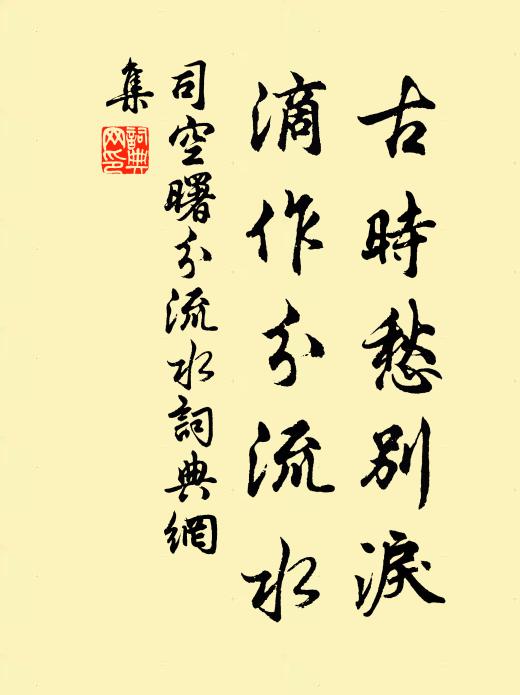 古時愁別淚
滴作分流水
司空曙分流水詞典網
集
詞典网印